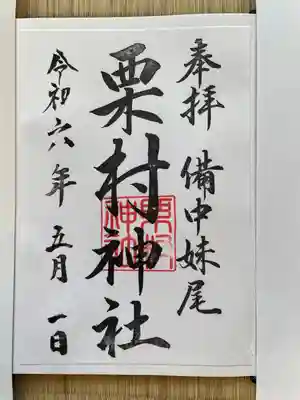 奉拝 備中妹尾
栗村神社
令和六年 五月 一日